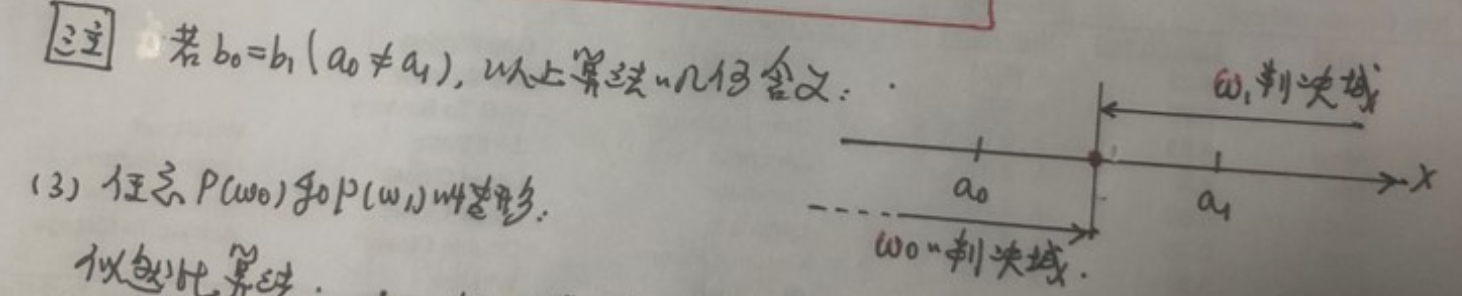 注 若 b₀=b₁ (a₀≠a₁), 以上算法的几何含义:
ω₁判决域
a₀ a₁ X
ω₀的判决域.
(3) 任意 P(ω₀)和P(ω₁)的情形:
似然比算法.